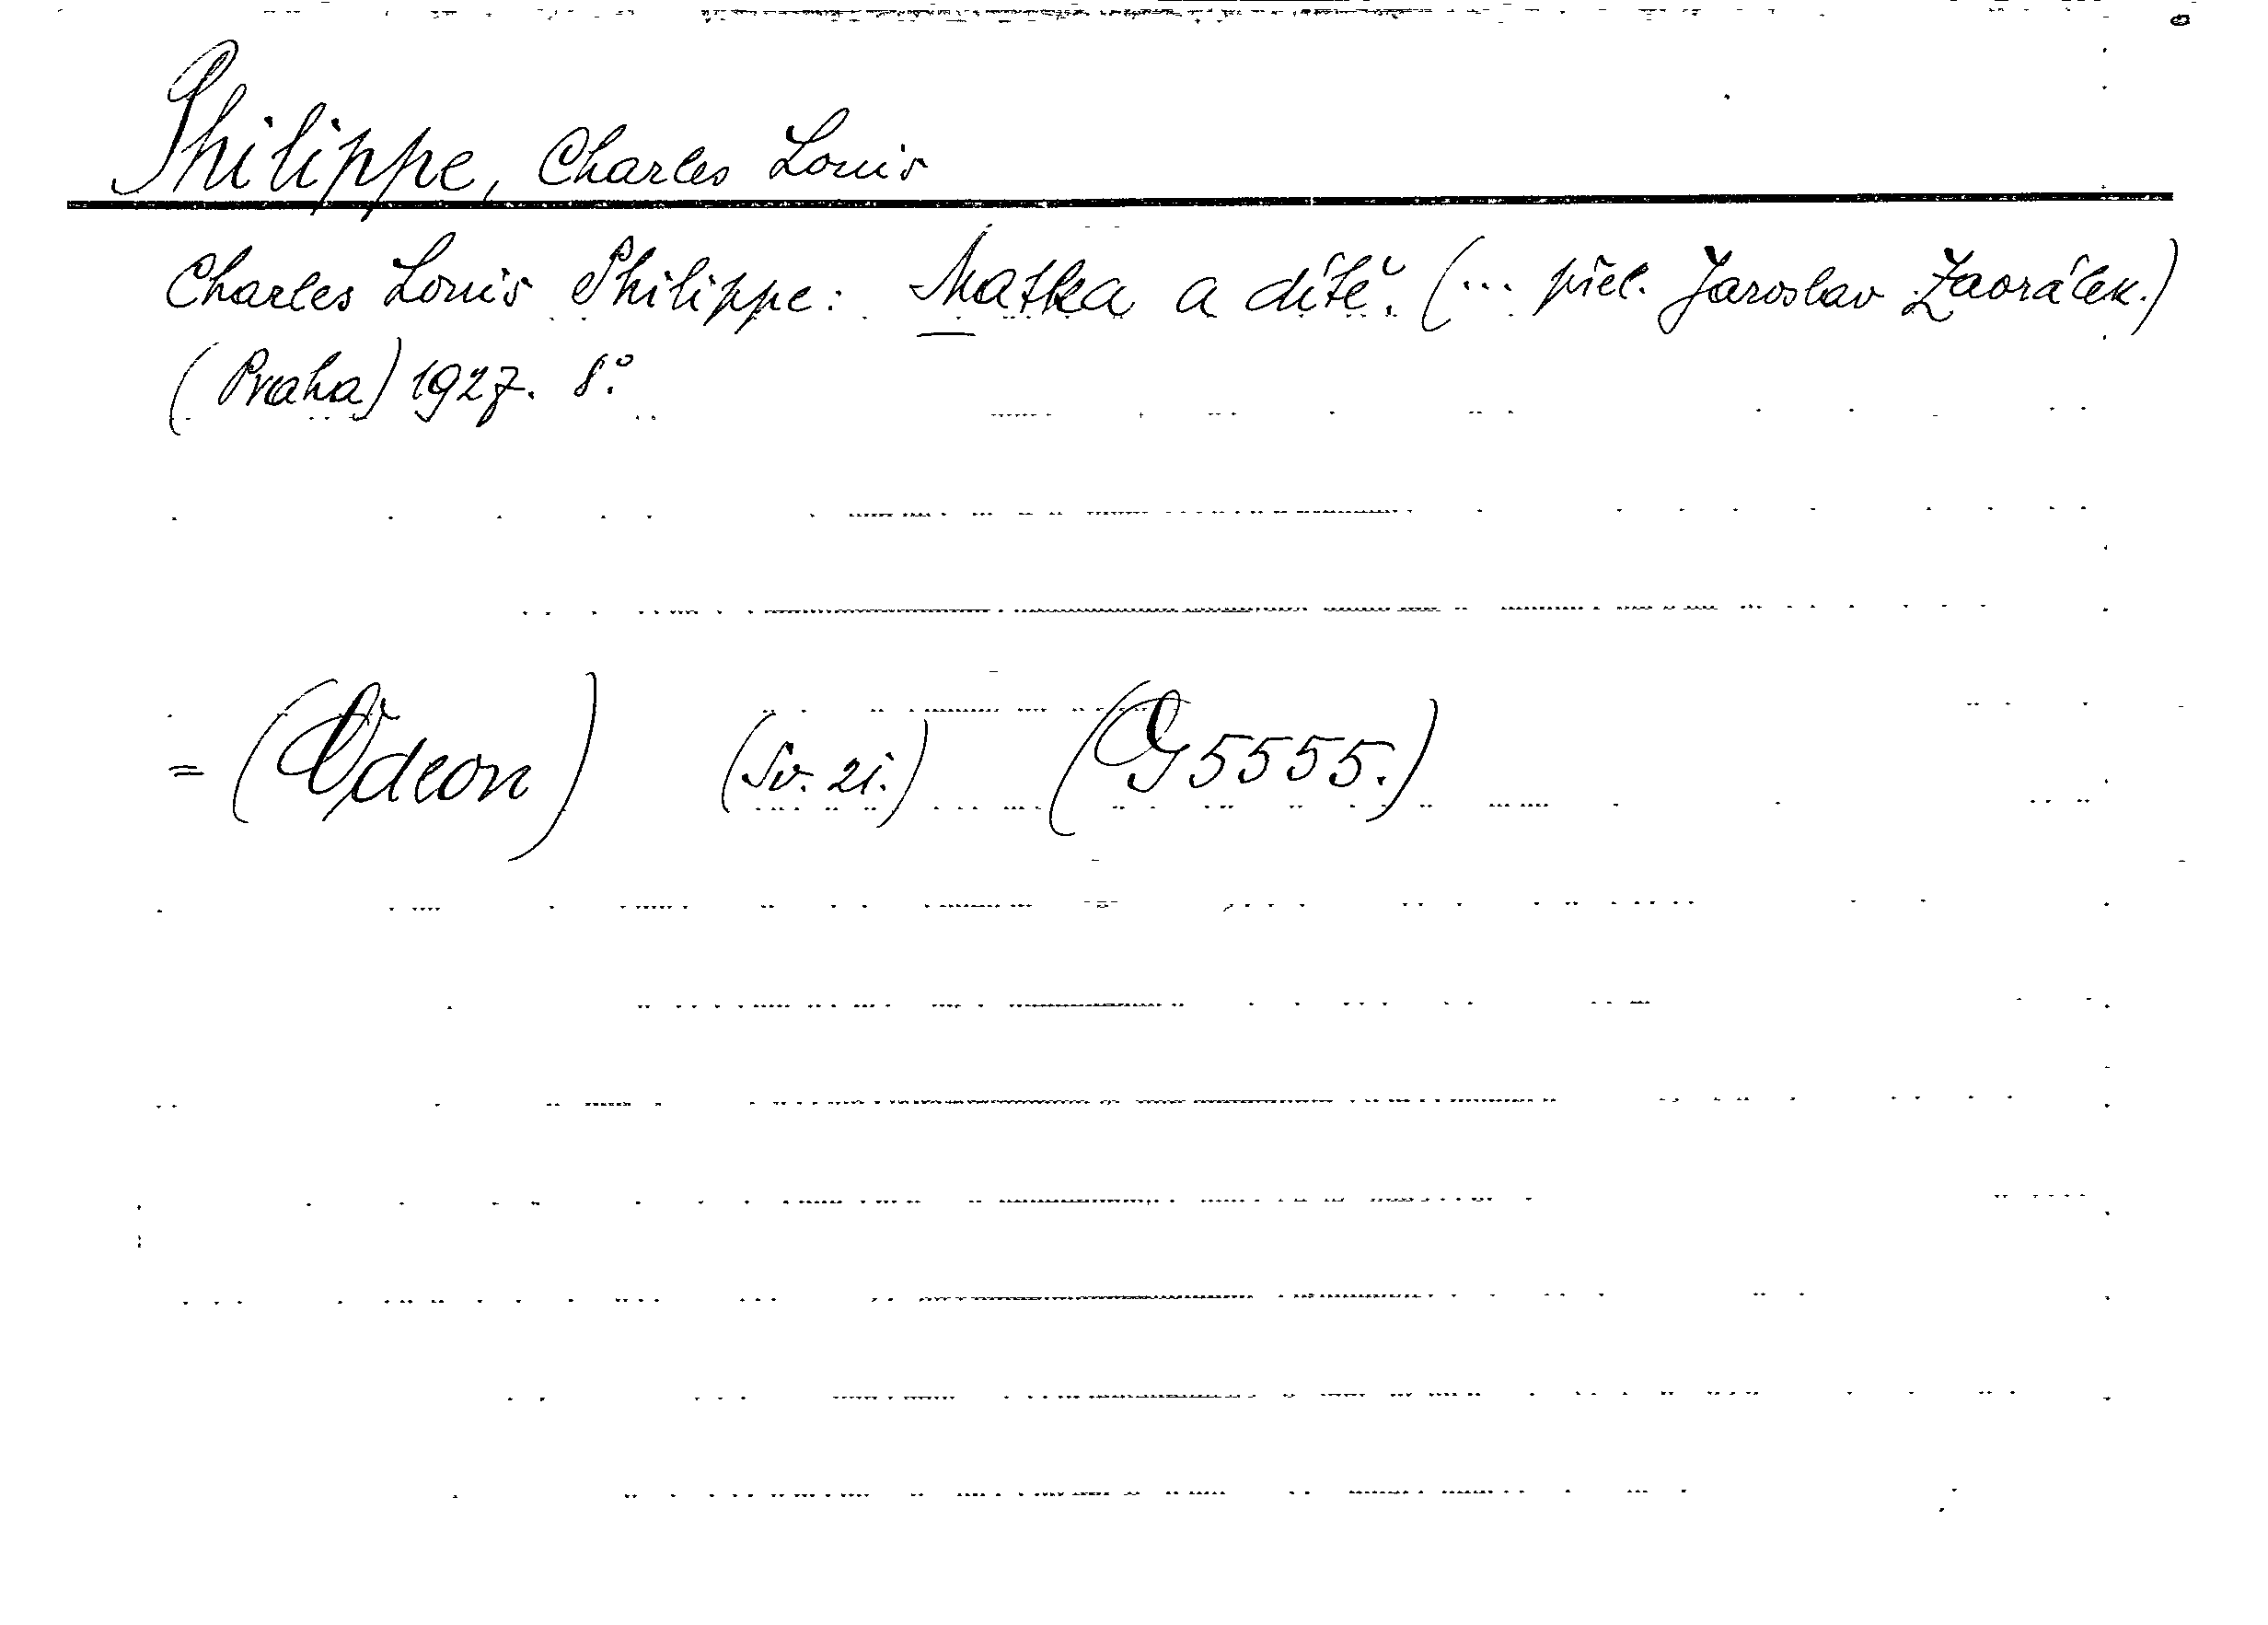 Philippe, Charles Louis
Charles Louis Philippe: Matka a dítě. (... přel. Jaroslav Zaorálek.)
(Praha) 1927. 8°.
= (Odeon) (Sv. 21.) (Og 5555.)